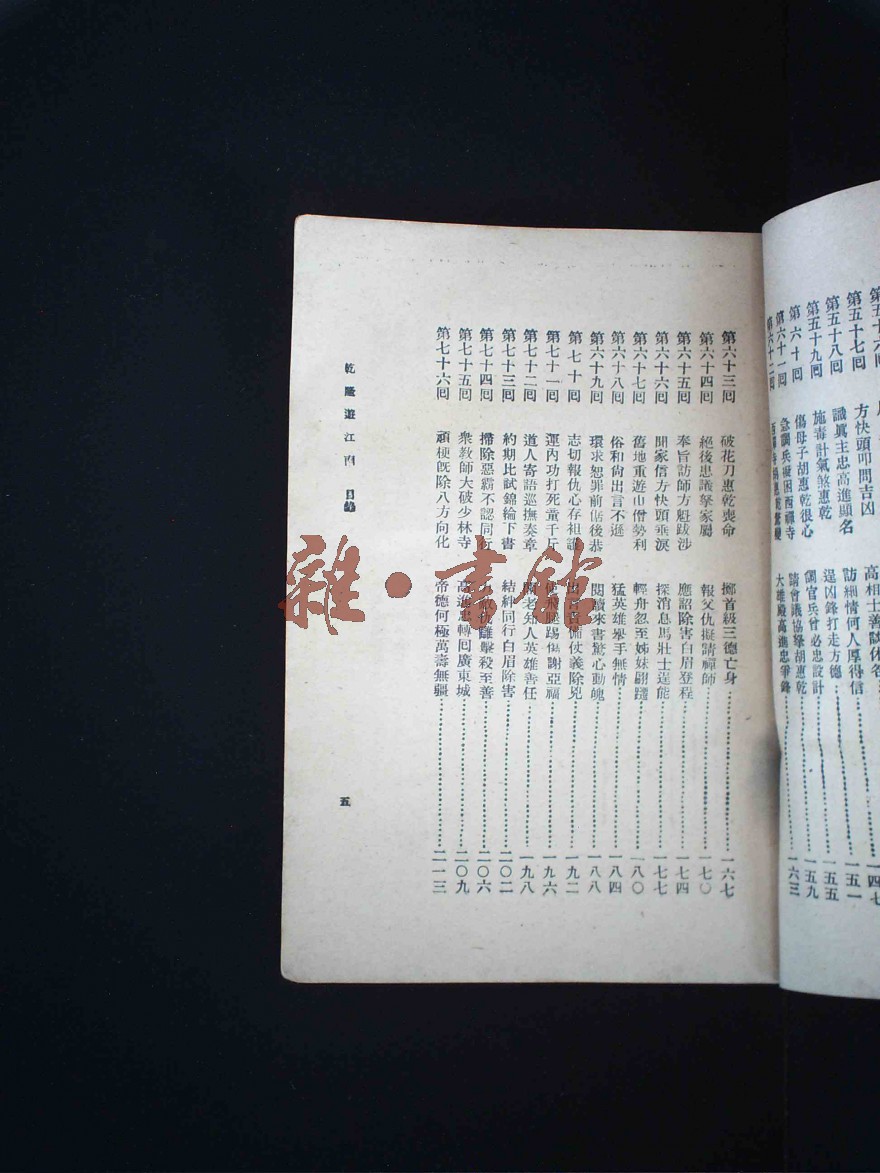 第五十七囘 方快頭叩問吉凶 訪細情何人厚得信 一五一
第五十八囘 識眞主忠高進顯名 逞凶鋒打走方德 一五五
第五十九囘 施毒計氣煞惠乾 調官兵曾必忠設計 一五九
第六十囘 傷母子胡惠乾很心 請會議協拏胡惠乾
第六十一囘 急調兵擬困西禪寺 大雄殿高進忠爭鋒 一六三
第六十二囘
第六十三囘 破花刀惠乾喪命 擲首級三德亡身 一六七
第六十四囘 絕後患議拏家屬 報父仇擬請禪師 一七〇
第六十五囘 奉旨訪師方魁跋涉 應詔除害白眉登程 一七四
第六十六囘 開家信方快頭垂淚 探消息馬壯士逞能 一七七
第六十七囘 舊地重遊山僧勢利 輕舟忽至姊妹翩躚 一八〇
第六十八囘 俗和尙出言不遜 猛英雄舉手無情 一八四
第六十九囘 環求恕罪前倨後恭 閱讀來書驚心動魄 一八八
第七十囘 志切報仇心存祖護 仗義除兇 一九二
第七十一囘 運內功打死童千斤 飛腿踢傷謝亞福 一九六
第七十二囘 道人寄語巡撫奏章 老知人英雄善任 一九八
第七十三囘 約期比試錦綸下書 結絆同行白眉除害 二〇二
第七十四囘 掃除惡霸不認同行 仇讎擊殺至善 二〇六
第七十五囘 衆教師大破少林寺 高進忠轉囘廣東城 二〇九
第七十六囘 頑梗旣除八方向化 帝德何極萬壽無疆 二一三
乾隆遊江南 目錄
五
雜·書館